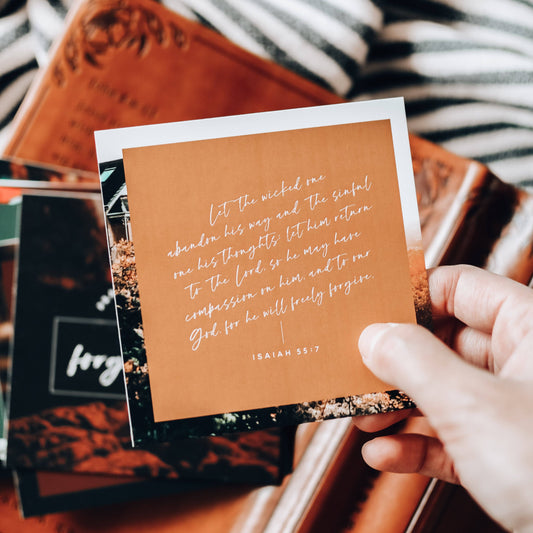 Let the wicked one
abandon his way and the sinful
one his thoughts; let him return
to the Lord, so he may have
compassion on him, and to our
God, for he will freely forgive.
ISAIAH 55:7
forg